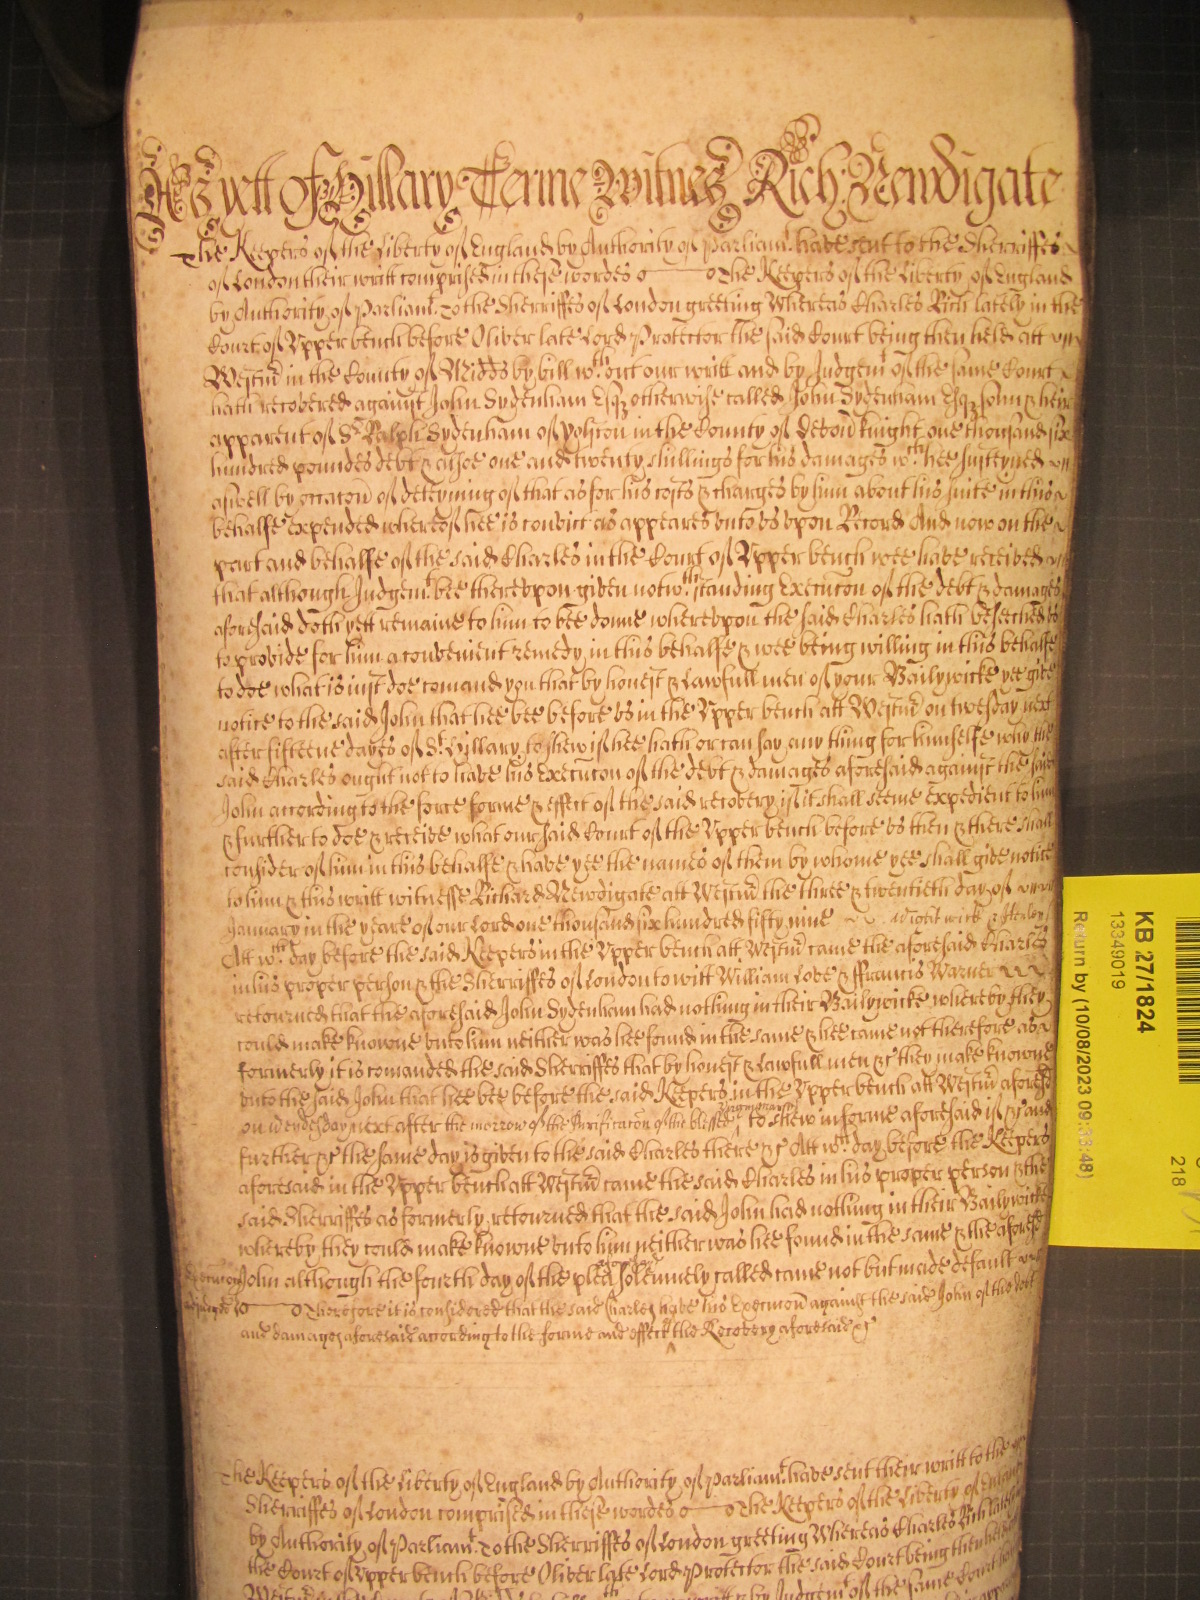 As yett of Hillary Terme Witnes Rich: Newdigate
The Keepers of the Liberty of England by Authority of Parliamt. have sent to the Sherriffes
of London their writt comprised in these wordes The Keepers of the Liberty of England
by Authority of Parliamt. To the Sherriffes of London greeting Whereas Charles Rich lately in the
Court of Vpper bench before Oliver late Lord Protector the said Court being then held att
Westmr in the County of Midds by bill wthout our writt and by Judgemt of the same Court
hath recovered against John Sydenham Esqr otherwise called John Sydenham Esqr sonn & heir
apparent of Sr Ralph Sydenham of in the County of Devon knight one thousand six
hundred poundes debt & alsoe one and twenty shillings for his damages wch hee susteyned
aswell by occacon of deteyning of that as for his costs & charges by him about his suite in this
behalfe expended whereof hee is convict as appeares vnto vs vpon Record And now on the
part and behalfe of the said Charles in the Court of Vpper bench wee have received
that although Judgemt. bee therevpon given notwthstanding Execucon of the debt & damages
aforesaid doth yett remaine to him to bee donne wherevpon the said Charles hath beseeched vs
to provide for him a convenient remedy in this behalfe & wee being willing in this behalfe
to doe what is just doe comand you that by honest & Lawfull men of your Bailywicke yee give
notice to the said John that hee bee before vs in the Vpper bench att Westmr on twesday next
after fifteene dayes of St. Hillary to shew if hee hath or can say any thing for himselfe why the
said Charles ought not to have his Execucon of the debt & damages aforesaid against the said
John according to the force forme & effect of the said recovery if it shall seeme expedient to him
& further to doe & receive what our said Court of the Vpper bench before vs then & there shall
consider of him in this behalfe & have yee the names of them by whome yee shall give notice
to him & this writt witnesse Richard Newdigate att Westmr the three & twentieth day of
January in the yeare of our Lord one thousand six hundred fifty nine
Att wch. day before the said Keepers in the Vpper bench att Westmr came the aforesaid Charles
in his proper person & the Sherriffes of London to witt William Love & ffrancis Warner
retourned that the aforesaid John Sydenham had nothing in their Bailywicke whereby they
could make knowne vnto him neither was hee found in the same & hee came not therefore as
formerly it is comanded the said Sherriffes that by honest & Lawfull men &c they make knowne
vnto the said John that hee bee before the said Keepers in the Vpper bench att Westmr aforesd
on Weydesday next after the morrow of the Purificacon of the blessed to shew in forme aforesaid if &c and
further &c the same day is given to the said Charles there &c Att wch day before the Keepers
aforesaid in the Vpper bench att Westmr came the said Charles in his proper person & the
said Sherriffes as formerly retourned that the said John had nothing in their Bailywicke
whereby they could make knowne vnto him neither was hee found in the same & the aforesd
John although the fourth day of the plea solemnely called came not but made default
Therefore it is considered that the said Charles have his Execucon against the said John of the debt
and damages aforesaid according to the forme and effect of the Recovery aforesaid &c
The Keepers of the Liberty of England by Authority of Parliamt. have sent their writt to the
Sherriffes of London comprised in these wordes The Keepers of the Liberty of England
by Authority of Parliamt. To the Sherriffes of London greeting Whereas Charles Rich lately in
the Court of Vpper bench before Oliver late Lord Protector the said Court being then held att
KB 27/1824
13349019
Return by (10/08/2023 09:33:48)
218